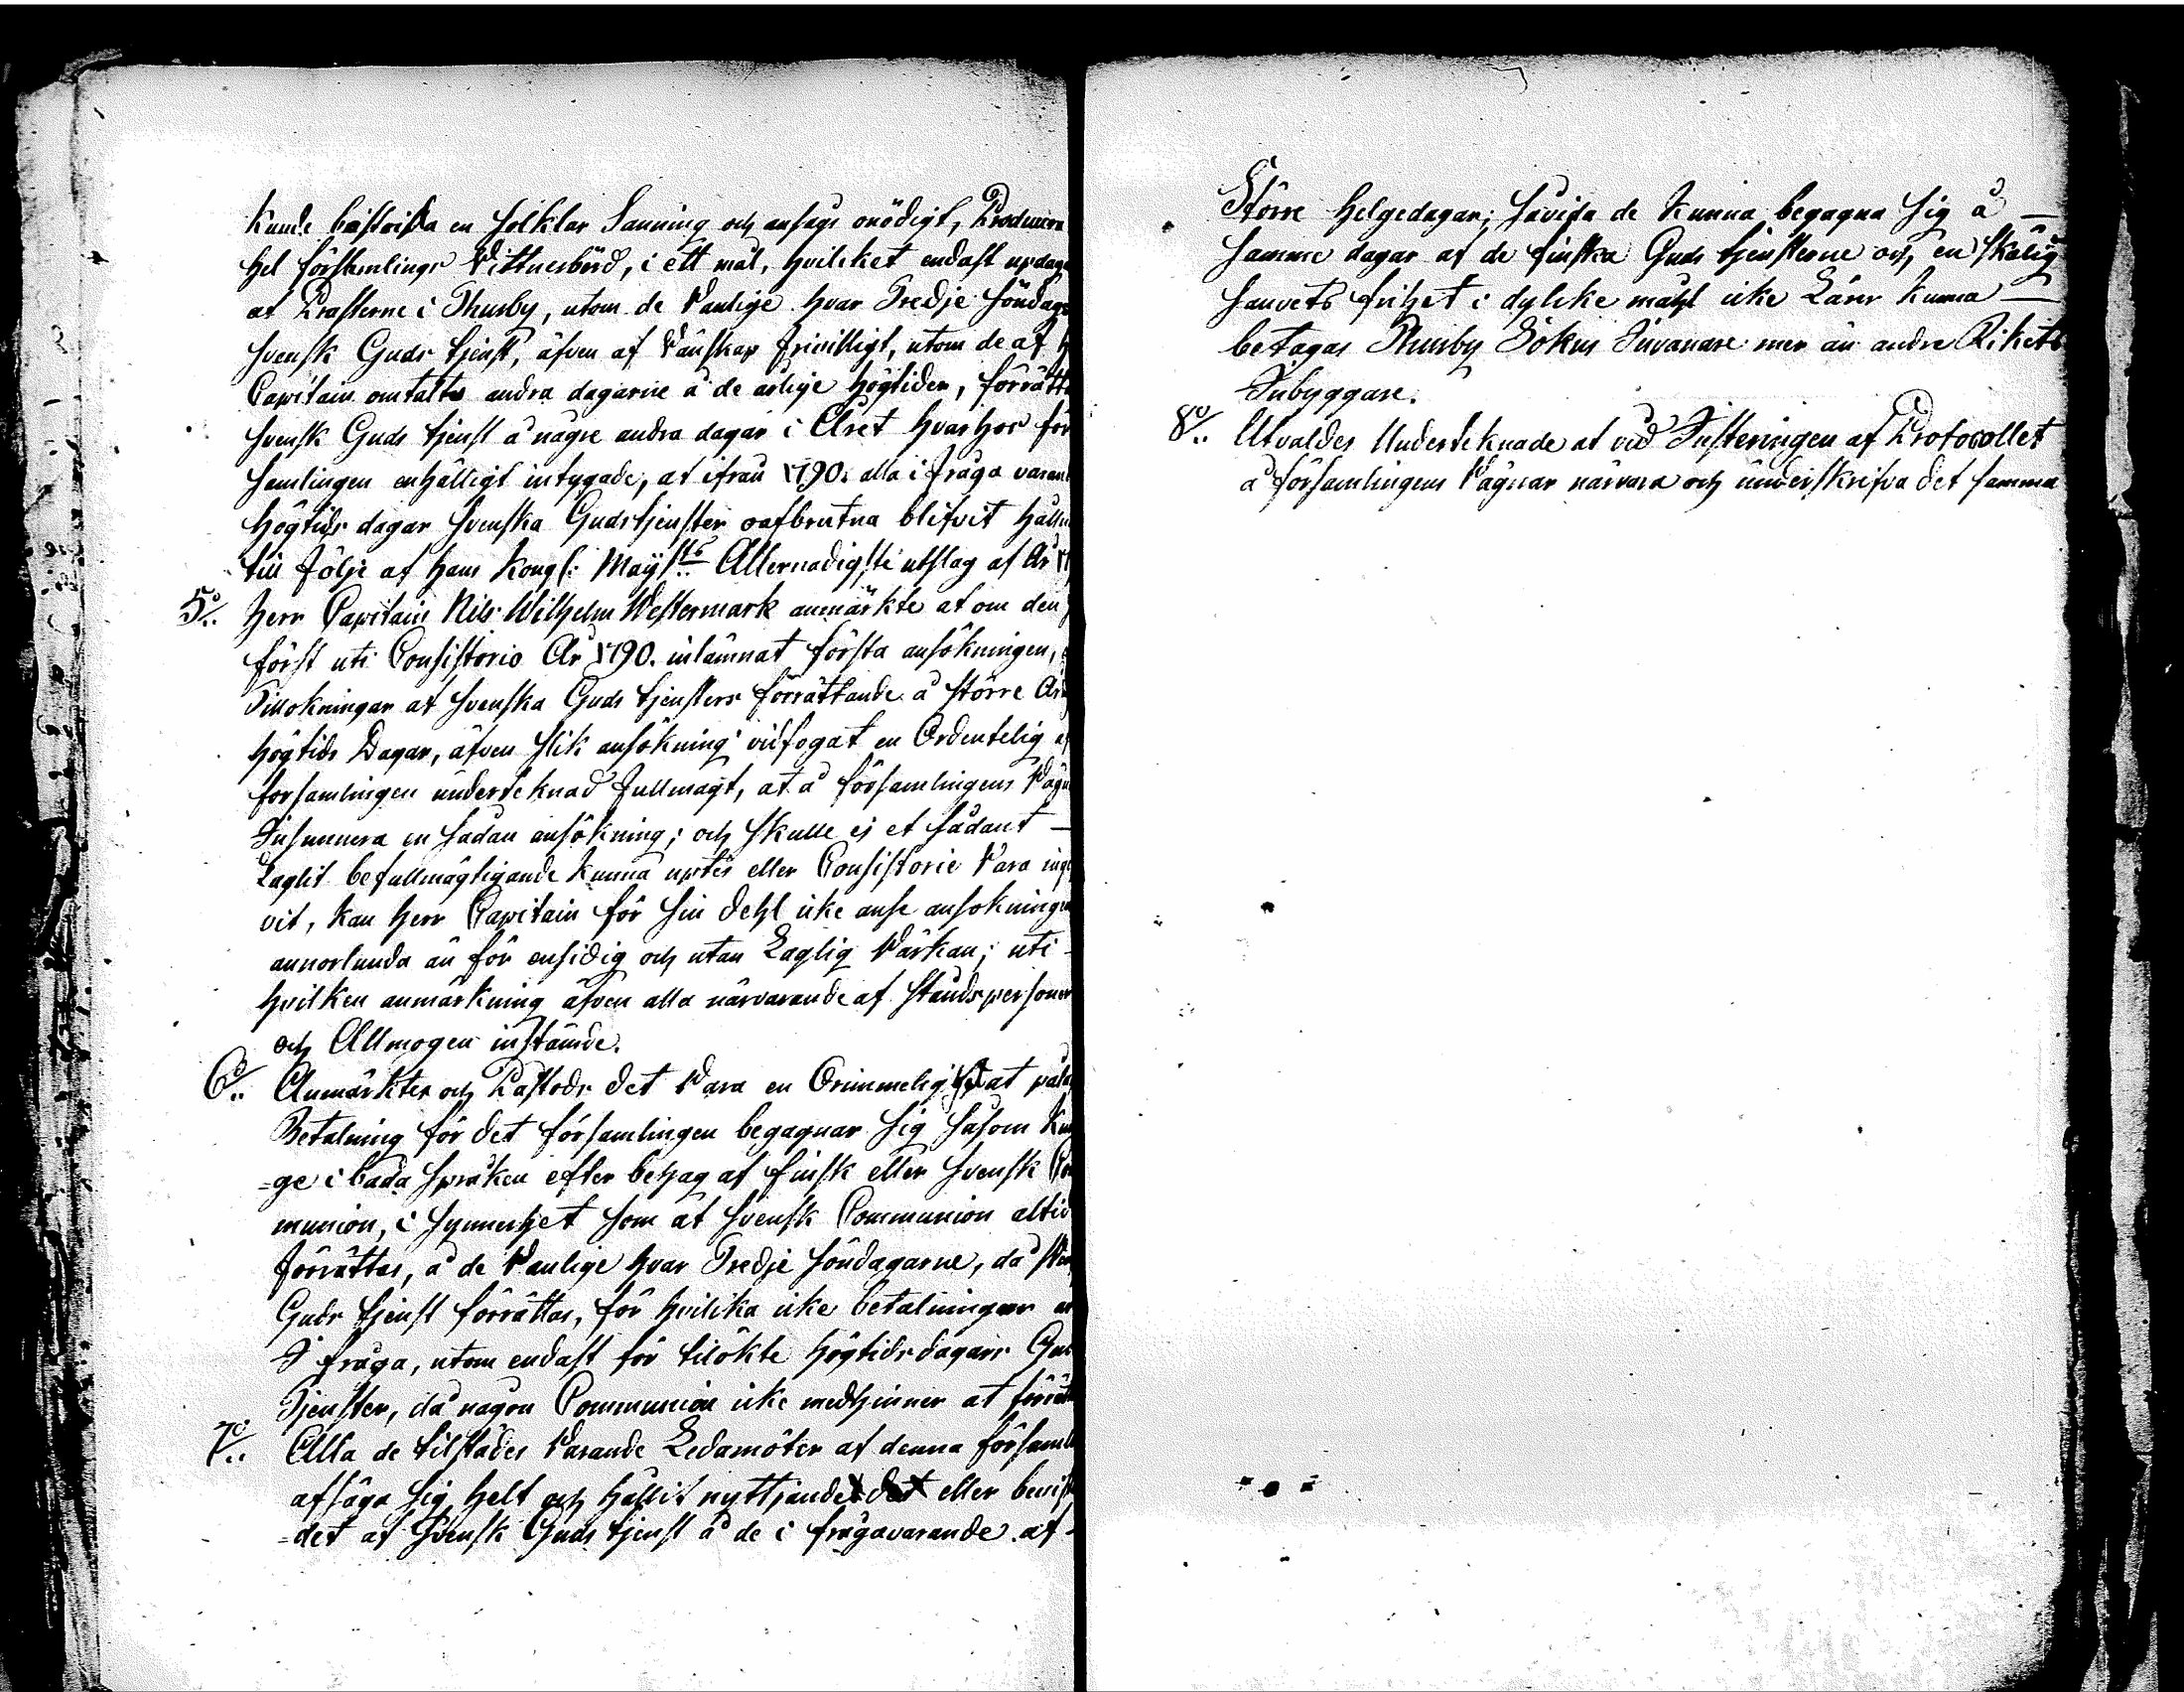 kunde bestrida en solklar Sanning och ansags onödigt, Producera
hel församlings Vittnesbörd, i ett mål, hvilcket endast updag
at Presterne i Thusby, utom de Vanlige hvar Tredje Söndags
Svensk Guds tjenst, äfven af Vänskap frivilligt, utom de af H
Capitain omtalte andra dagarne å de årlige högtider, förrätta
Svensk Guds tjenst å någre andra dagar i Året hvarhos för
samlingen enhälligt intygade, at ifrån 1790. alla i fråga varand
högtids dagar Svenska Gudstjenster oafbrutna blifvit hålln
till följe af Hans Kongl: Maÿsts Allernådigste utslag af År 17
5o/.. Herr Capitain Nils Wilhelm Westermark anmärkte at om den
först uti Consistorio År 1790. inlämnat första ansökningen,
Tillokningar af Svenska Guds tjensters förrättande å större År
högtids Dagar, äfven slik ansökning vidfogat en Ordentelig af
forsamlingen underteknad fullmagt, at å församlingens Vägn
Insinuera en sådan ansökning; och skulle ej et sådant —
Laglit befullmägtigande kunna uptes eller Consistorie Vara inge
vit, kan Herr Capitain för sin dehl icke anse ansokningen
annorlunda än för ensidig och utan Laglig Värkan; uti-
hvilken anmärkning äfven alla närvarande af Ståndspersoner
och Allmogen instämde.
6o/.. Anmärktes och Påstods det Vara en Orimmelig at påla
Betalning för det församlingen begagnar sig såsom Kun
=ge i båda Språken efter behag af finsk eller Svensk Com
munion, i synnerhet som at Svensk Communion altid
förrättas, å de Vanlige hvar Tredje Söndagarne, då Sven
Guds tjenst förrättas, för hvilcka icke betalningar är
I fråga, utom endast för tilökte högtidsdagars Gud
Tjenster, då någon Communion icke medhinner at förrät
7o/.. Alla de tilstädes Varande Ledamöter af denna församl
afsäga sig helt och hållit nyttjandet eller bevist
=det af Svensk Guds tjenst å de i frågavarande at-
Större Helgedagar; såvida de kunna begagna sig å —
samme dagar af de finska Guds tjensterne och en skälig
samvets frihet i dylicke måhl icke Lärer kunna —
betagas Thusby Sokns Invånare mer än andre Rikets
Inbyggare.
8o/.. Utvaldes Underteknade at vid Justeringen af Protocollet
å församlingens Vägnar närvara och underskrifva det samma